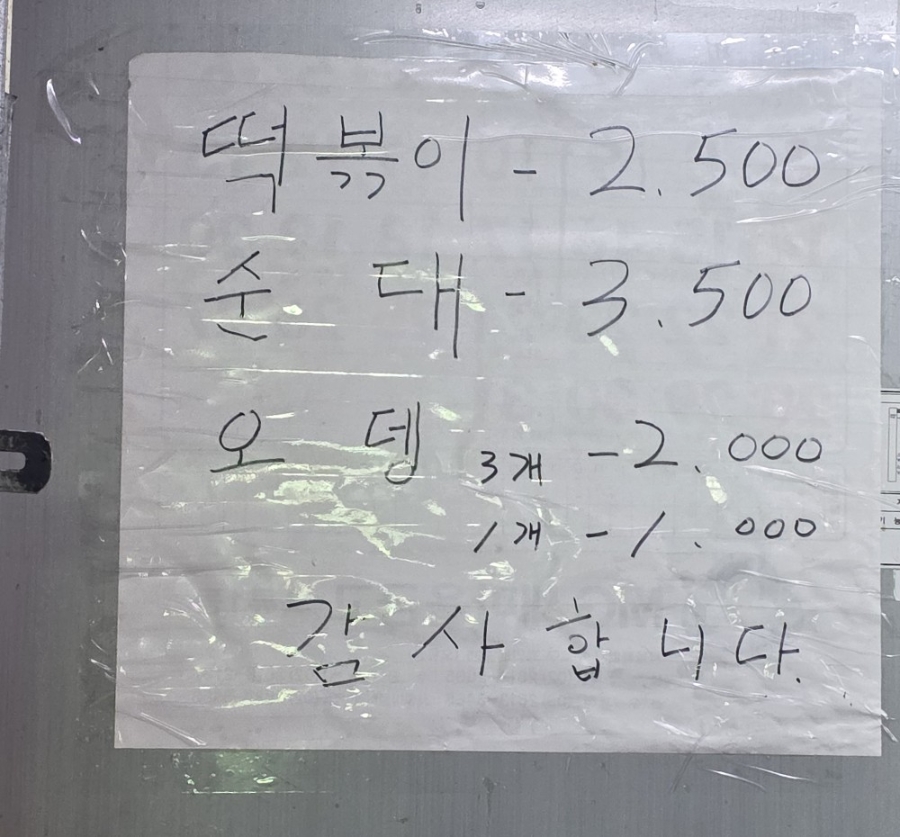 떡볶이 - 2.500
순 대 - 3.500
오 뎅 3개 - 2.000
1개 - 1.000
감 사 합 니 다.